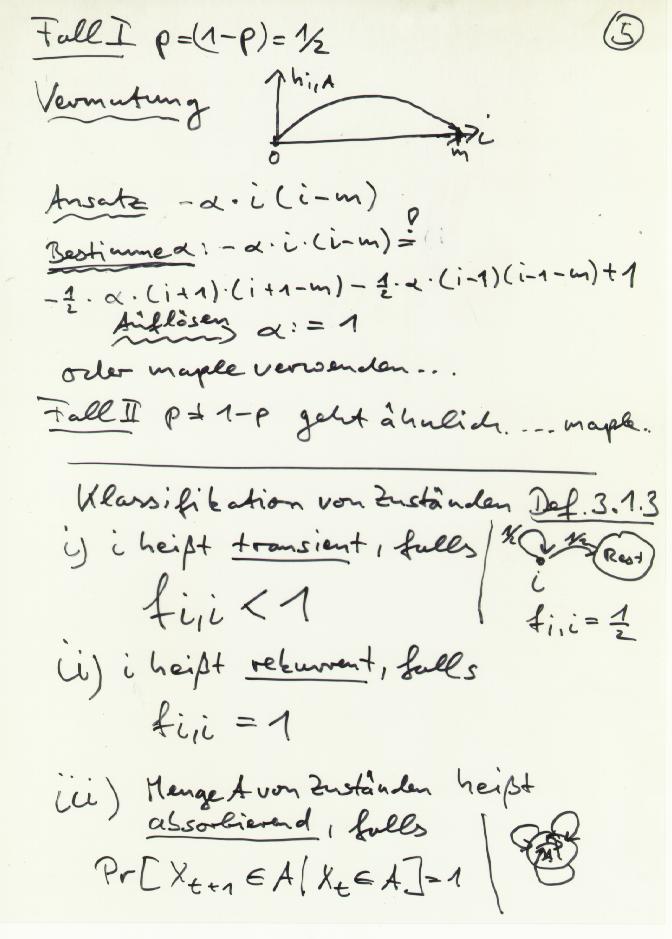 Fall I p=(1-p)=1/2
5
Vermutung
h i,A
i
0
m
Ansatz -α·i(i-m)
Bestimme α: -α·i·(i-m) =!
-1/2·α·(i+1)·(i+1-m) - 1/2·α·(i-1)(i-1-m)+1
Auflösen α:=1
oder maple verwenden...
Fall II p≠1-p geht ähnlich.... maple..
Klassifikation von Zuständen Def.3.1.3
i) i heißt transient, falls
f i,i < 1
1/2
1/2
Rest
i
f i,i = 1/2
ii) i heißt rekurrent, falls
f i,i = 1
iii) Menge A von Zuständen heißt
absorbierend, falls
Pr[X t+1 ∈ A | X t ∈ A]=1
A